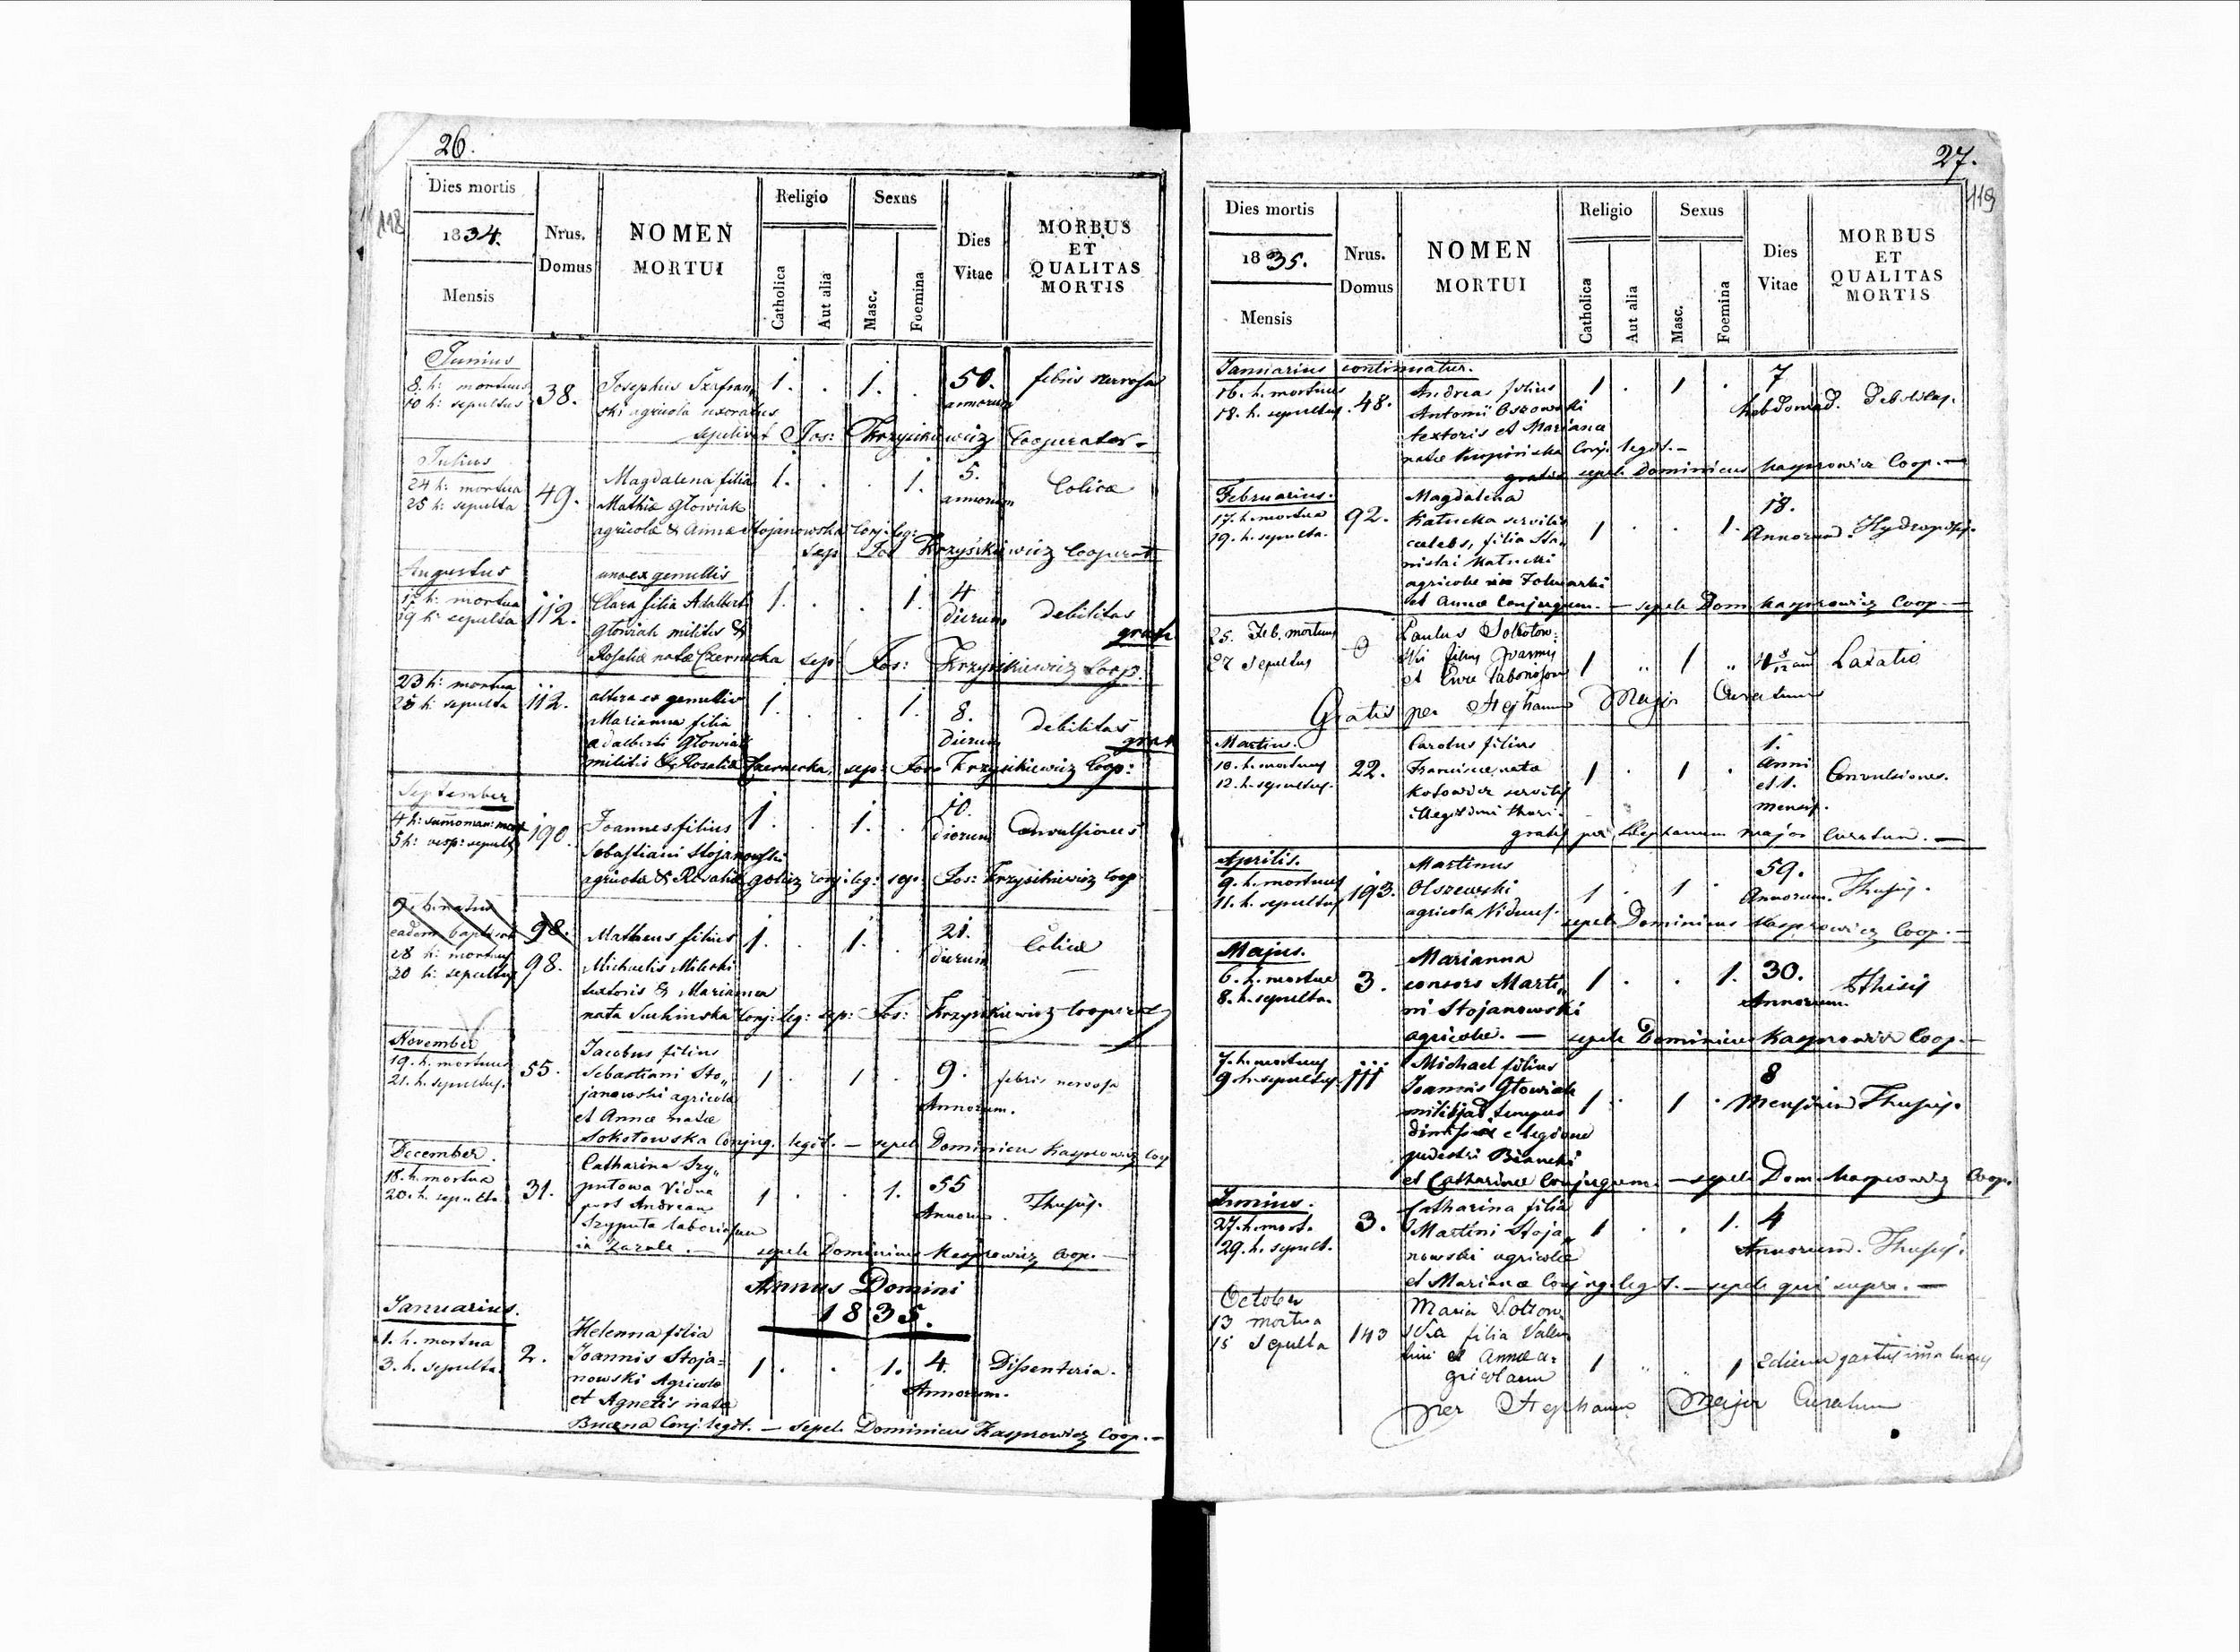 26.
118
Dies mortis
1834.
Mensis
Nrus.
Domus
NOMEN
MORTUI
Religio
Catholica
Aut alia
Sexus
Masc.
Foemina
Dies
Vitae
MORBUS
ET
QUALITAS
MORTIS
Junius
8. h: mortuus
10 h: sepultus
38.
Josephus Szafran
ski agricola uxoratus
1. . 1. .
50.
annorum
febris nervosa
sepelivit Jos: Krzysikiewicz Cooperator
Julius
24 h: mortua
25 h: sepulta
49.
Magdalena filia
Mathiæ Głowiak
agricolæ & Annæ Stojanowska conj: leg:
1. . . 1.
5.
annorum
Colica
sep Jos Krzysikiewicz Cooperat
Augustus
una ex gemellis
17 h: mortua
19 h: sepulta
112.
Clara filia Adalberti
Głowiak militis &
Rosaliæ natæ Czernecka
1. . . 1.
4
dierum
debilitas
grat
sep Jos: Krzysikiewicz Coop.
23 h: mortua
25 h: sepulta
112.
altera ex gemellis
Marianna filia
adalberti Głowiak
militis & Rosaliæ Czernecka
1. . . 1.
8.
dierum
debilitas
grat
sep: Jos: Krzysikiewicz Coop:
September
4 h:
5 h: vesp: sepult
190.
Joannes filius
Sebastiani Stojanowski
agricolæ & Rosaliæ conj: leg: sep: Jos: Krzysikiewicz Coop
1. . 1. .
10.
dierum
Convulsiones
9. h. natus
eadem baptisat
98.
28 h: mortuus
30 h: sepultus
98.
Matheus filius
Michaelis Mileski
textoris & Marianna
nata Suchinska conj: leg: sep: Jos: Krzysikiewicz Cooperat
1. . 1. .
21.
dierum
Colica
November
19. h. mortuus
21. h. sepultus.
55.
Jacobus filius
Sebastiani Sto„
janowski agricolæ
et Annæ natæ
Sokołowska Conjug. legit. — sepel Dominicus Kasprowicz Coop
1 . 1 .
9.
Annorum.
febris nervosa
December.
18. h. mortua
20. h. sepulta
31.
Catharina Szy„
putowa Vidua
post Andream
Szyputa laboriosum
in
1 . . 1.
55
Annorum.
Thusis.
sepel Dominicus Kasprowicz Coop. —
Annus Domini
1835.
Januarius.
1. h. mortua
3. h. sepulta
2.
Helenna filia
Joannis Stoja=
nowski Agricolæ
et Agnetis nata
1 . . 1.
4.
Annorum.
Dissenteria.
Conj. legit. — sepel Dominicus Kasprowicz Coop. —
27.
119
Dies mortis
1835.
Mensis
Nrus.
Domus
NOMEN
MORTUI
Religio
Catholica
Aut alia
Sexus
Masc.
Foemina
Dies
Vitae
MORBUS
ET
QUALITAS
MORTIS
Januarius continuatur.
16. h. mortuus
18. h. sepultus
48.
Andreas filius
Antonii
textoris et Mariannæ
natæ Conj. legit. —
1 . 1 .
7
hebdomad.
Debilitas.
gratis sepel. Dominicus Kasprowicz Coop. —
Februarius.
17. h. mortua
19. h. sepulta.
92.
Magdalena
Katucka servilis
cælebs, filia Sta„
nislai Katucki
agricolæ
et Annæ Conjugum. — sepel Dom Kasprowicz Coop. —
1 . . 1.
18.
Annorum.
Hydropisis.
25. Feb. mortuus
27 Sepultus
0
Paulus
filius
et
1 „ 1 „
Laxatio
Gratis per Stephanum Major Curatum
Martius.
10. h. mortuus
12. h. sepultus.
22.
Carolus filius
Franciscæ nata
servilis
1 . 1 .
1.
Anni
et 1.
mensis.
Convulsiones.
gratis per Stephanum major Curatum. —
Aprilis.
9. h. mortuus
11. h. sepultus
193.
Martinus
Olszewski
agricola Viduus.
1 . 1 .
59.
Annorum.
Thusis.
sepel Dominicus Kasprowicz Coop. —
Majus.
6. h. mortua
8. h. sepulta.
3.
Marianna
consors Marti„
ni Stojanowski
agricolæ. — sepel Dominicus Kasprowicz Coop. —
1 . . 1.
30.
Annorum.
Thisis
7. h. mortuus
9. h. sepultus.
111
Michael filius
Joannis Głowiak
militis ad tempus
dimissi e legione
pedestri Bianchi
et Catharinæ Conjugum. — sepel Dom. Kasprowicz Coop.
1 . 1 .
8
Mensium
Thusis.
Junius.
27. h. mort.
29. h. sepult.
3.
Catharina filia
Martini Stoja„
nowski agricolæ
et Marianæ Conjug. legit. — sepel qui supra. —
1 . . 1.
4
Annorum.
Thusis.
October
13 mortua
15 Sepulta
143
Maria
filia Valen
tini et Annæ a=
gricolarum
1 „ „ 1
per Stephanum Major Curatum